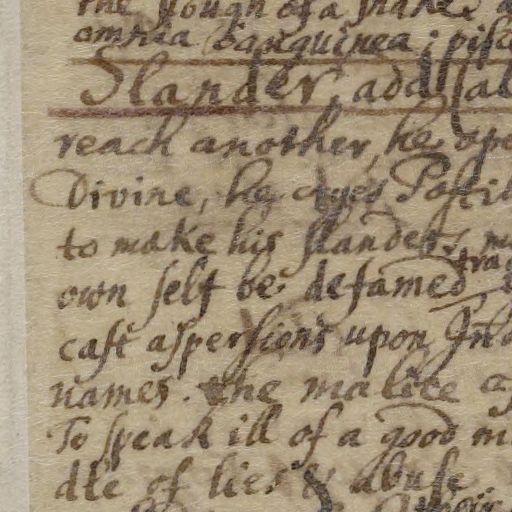 the slough of a snake
omnia sanguinea; pisc
Slander, add sal
reach another, he ope
Divine, he cryes Pastil
to make his slanders, m
own self be defamed tra
cast aspersions upon Inn
names. the malice of
To speak ill of a good m
dle of lies & abuse